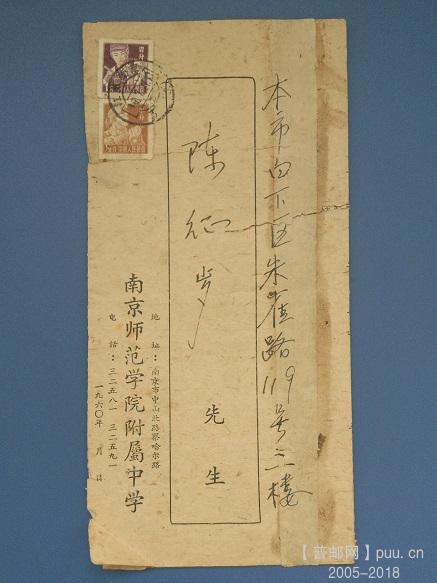 本市白下区朱雀路119号三楼
陈 先生
地址：南京市中山北路察哈尔路
南京师范学院附屬中学
电话：三二五八一 三二五九一
一九六〇年 月 日
【普邮网】puu.cn
2005-2018